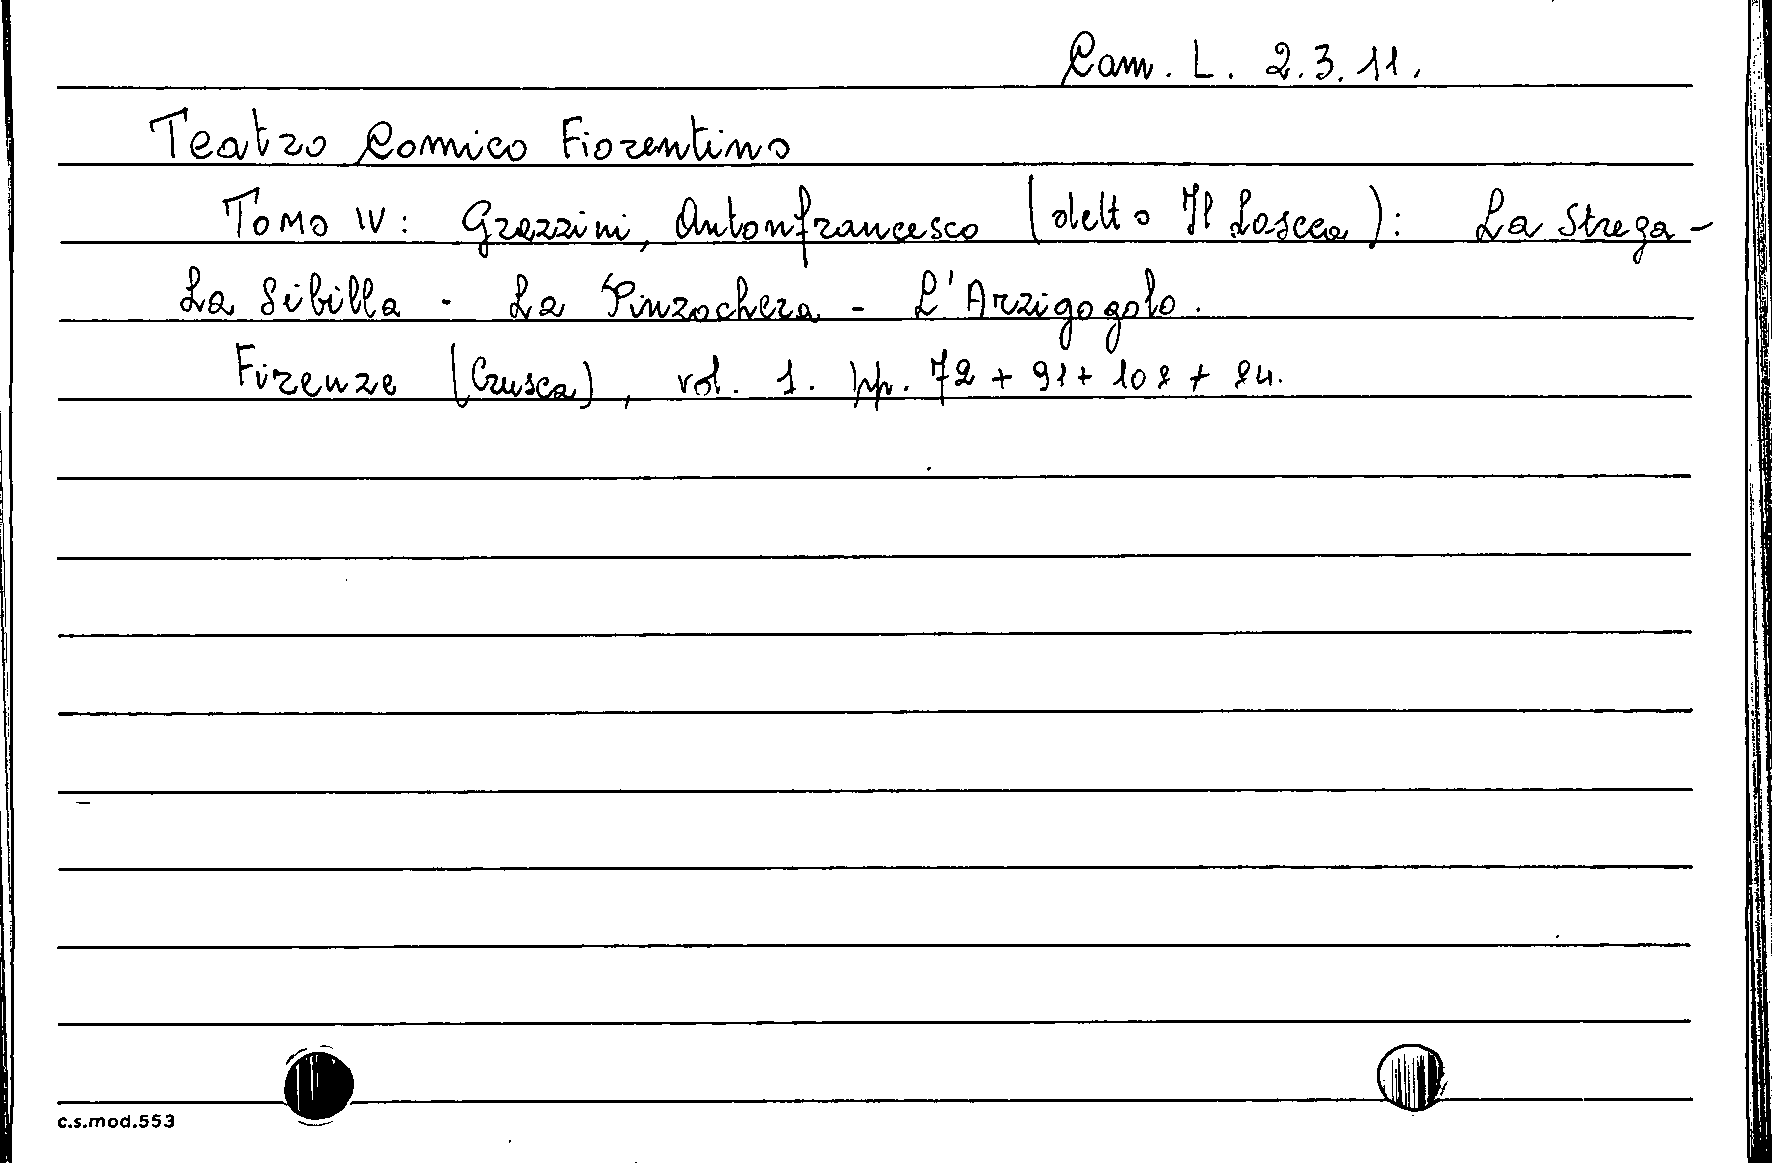 Cam. L. 2.3.11.
Teatro Comico Fiorentino
Tomo IV: Grazzini, Antonfrancesco (detto Il Lascca): La Strega -
La Sibilla - La Pinzochera - L'Arzigogolo.
Firenze (Crusca), vol. 1. pp. 72 + 91 + 102 + 84.
c.s.mod.553